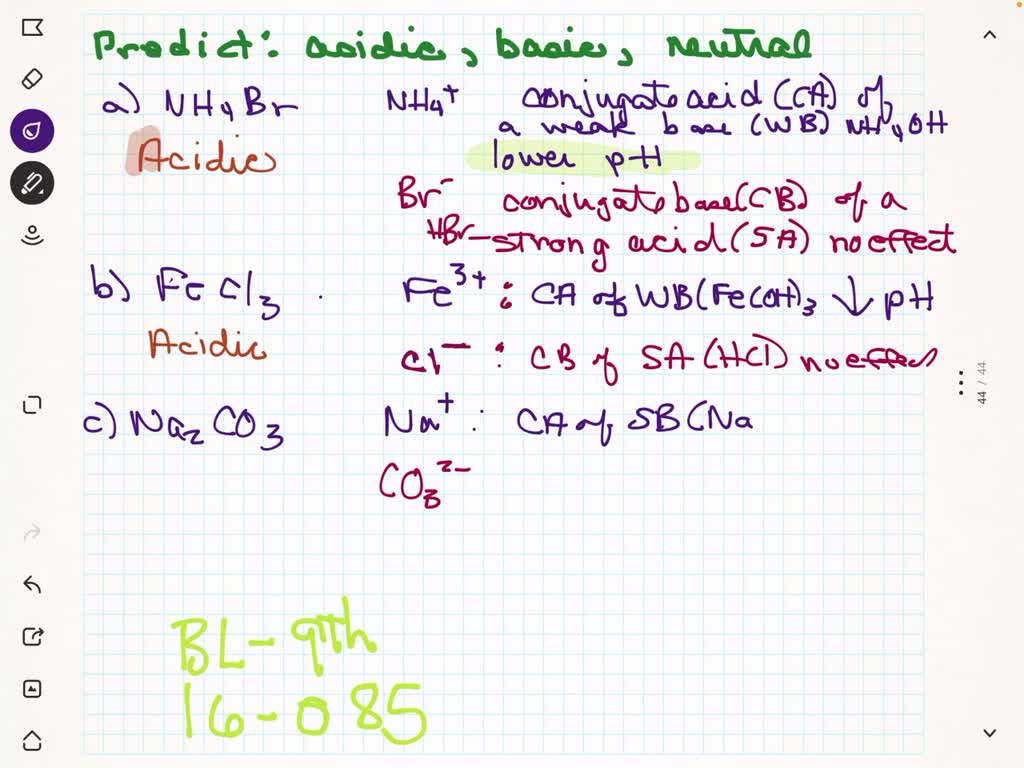 Predict: acidic, basic, neutral
a) NH4Br NH4+ conjugate acid (CA) of
a weak base (WB) NH4OH
Acidic lower pH
Br- conjugate base (CB) of a
HBr - strong acid (SA) no effect
b) FeCl3 Fe3+ : CA of WB (Fe(OH)3 ↓ pH
Acidic
Cl- : CB of SA (HCl) no effect
c) Na2CO3 Na+ : CA of SB (Na
CO3 2-
BL - 9th
16 - 085
44 / 44